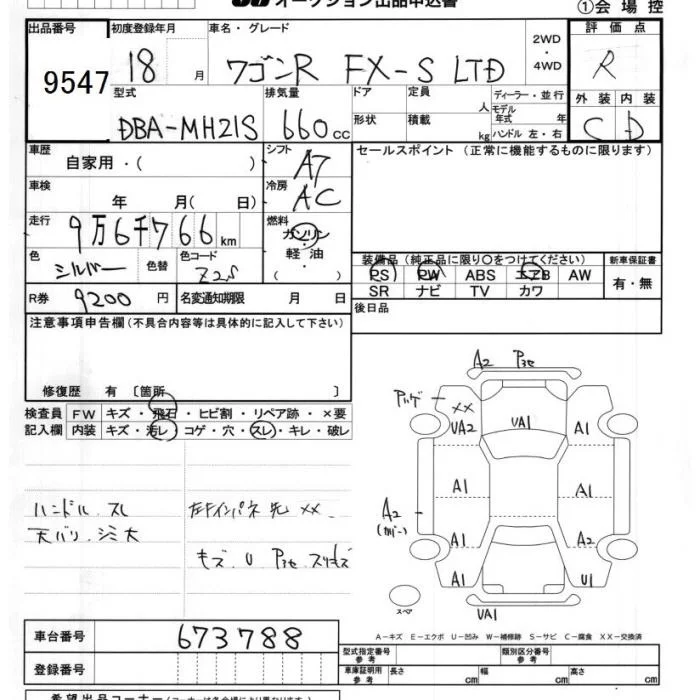 オークション出品申込書
①会場控
出品番号 初度登録年月 車名・グレード 2WD ・ 4WD 評価点
9547 18 月 ワゴンR FX-S LTD R
型式 排気量 ドア 定員 人 ディーラー・並行 外装 内装
DBA-MH21S 660 cc 形状 積載 kg モデル年式 年 ハンドル 左・右 C D
車歴 自家用・( ) シフト A7 セールスポイント (正常に機能するものに限ります)
車検 年 月( 日) 冷房 AC
走行 9万6千766 km 燃料 ガソリン・軽油・( )
色 シルバー 色替 色コード Z2S
装備品(純正品に限り〇をつけてください) 新車保証書
PS PW ABS エアB AW 有・無
SR ナビ TV カワ
R券 9200 円 名変通知期限 月 日 後日品
注意事項申告欄(不具合内容等は具体的に記入して下さい)
修復歴 有 〔箇所 〕
検査員 FW キズ・飛石・ヒビ割・リペア跡・×要
記入欄 内装 キズ・汚レ・コゲ・穴・スレ・キレ・破レ
A2
XX
UA2 UA1 A1
A1 A1
A2
A1 A2
A1 U1
スペア
UA1
ハンドル スレ 左Fインパネ先 XX.
天バリ シミ大
キズ U
A-キズ E-エクボ U-凹み W-補修跡 S-サビ C-腐食 XX-交換済
車台番号 673788
登録番号
型式指定番号 参考 類別区分番号 参考
車庫証明用 参考 長さ cm 幅 cm 高さ cm
希望出品コーナー